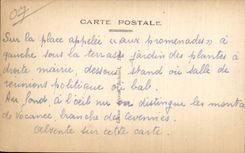 07
CARTE POSTALE
Sur la place appelée "aux promenades" à
gauche sous la terrasse jardin des plantes à
droite mairie, dessous stand où salle de
réunions politiques ou bal.
Au fond, à l'œil nu on distingue les monts
de vocance, branche des cévennes.
sur cette carte.